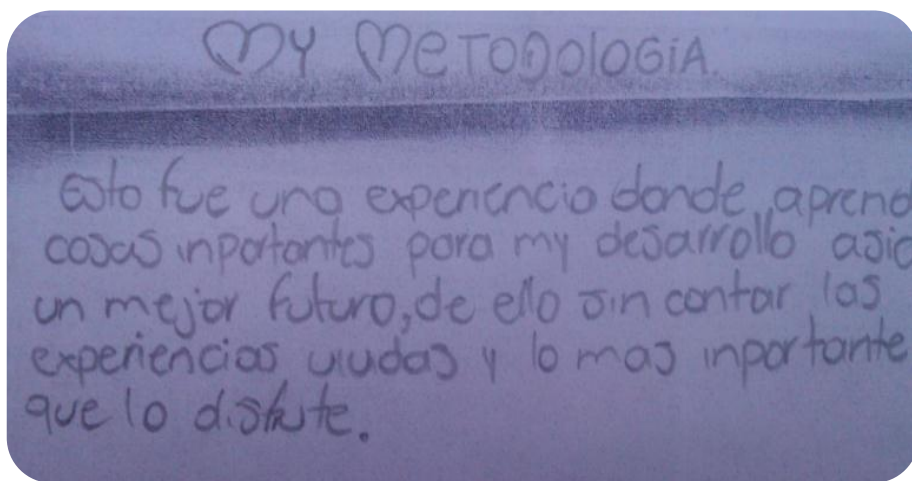 My MeTODOloGiA.
Esto fue una experiencia donde aprend
cosas inportantes para my desarrollo asia
un mejor futuro, de ello sin contar las
experiencias viudas y lo mas inportante
que lo disfrute.